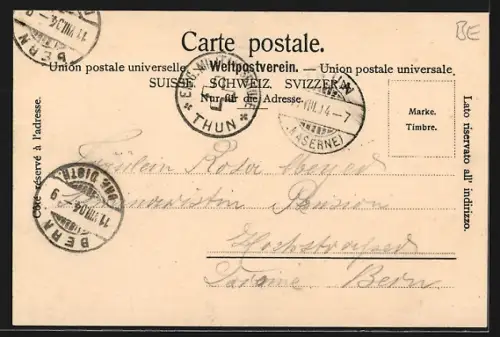 BE
Carte postale.
Union postale universelle. — Weltpostverein. — Union postale universale
SUISSE. SCHWEIZ. SVIZZERA.
Nur für die Adresse.
Côté réservé à l'adresse.
Lato riservato all' indirizzo.
Marke.
Timbre.
THUN
(KASERNE)
BERN
11.VIII.04
BERN
11.VIII.04 - 9
Fräulein Rosa
Seminaristin Pension
Hochstrasse
Bern